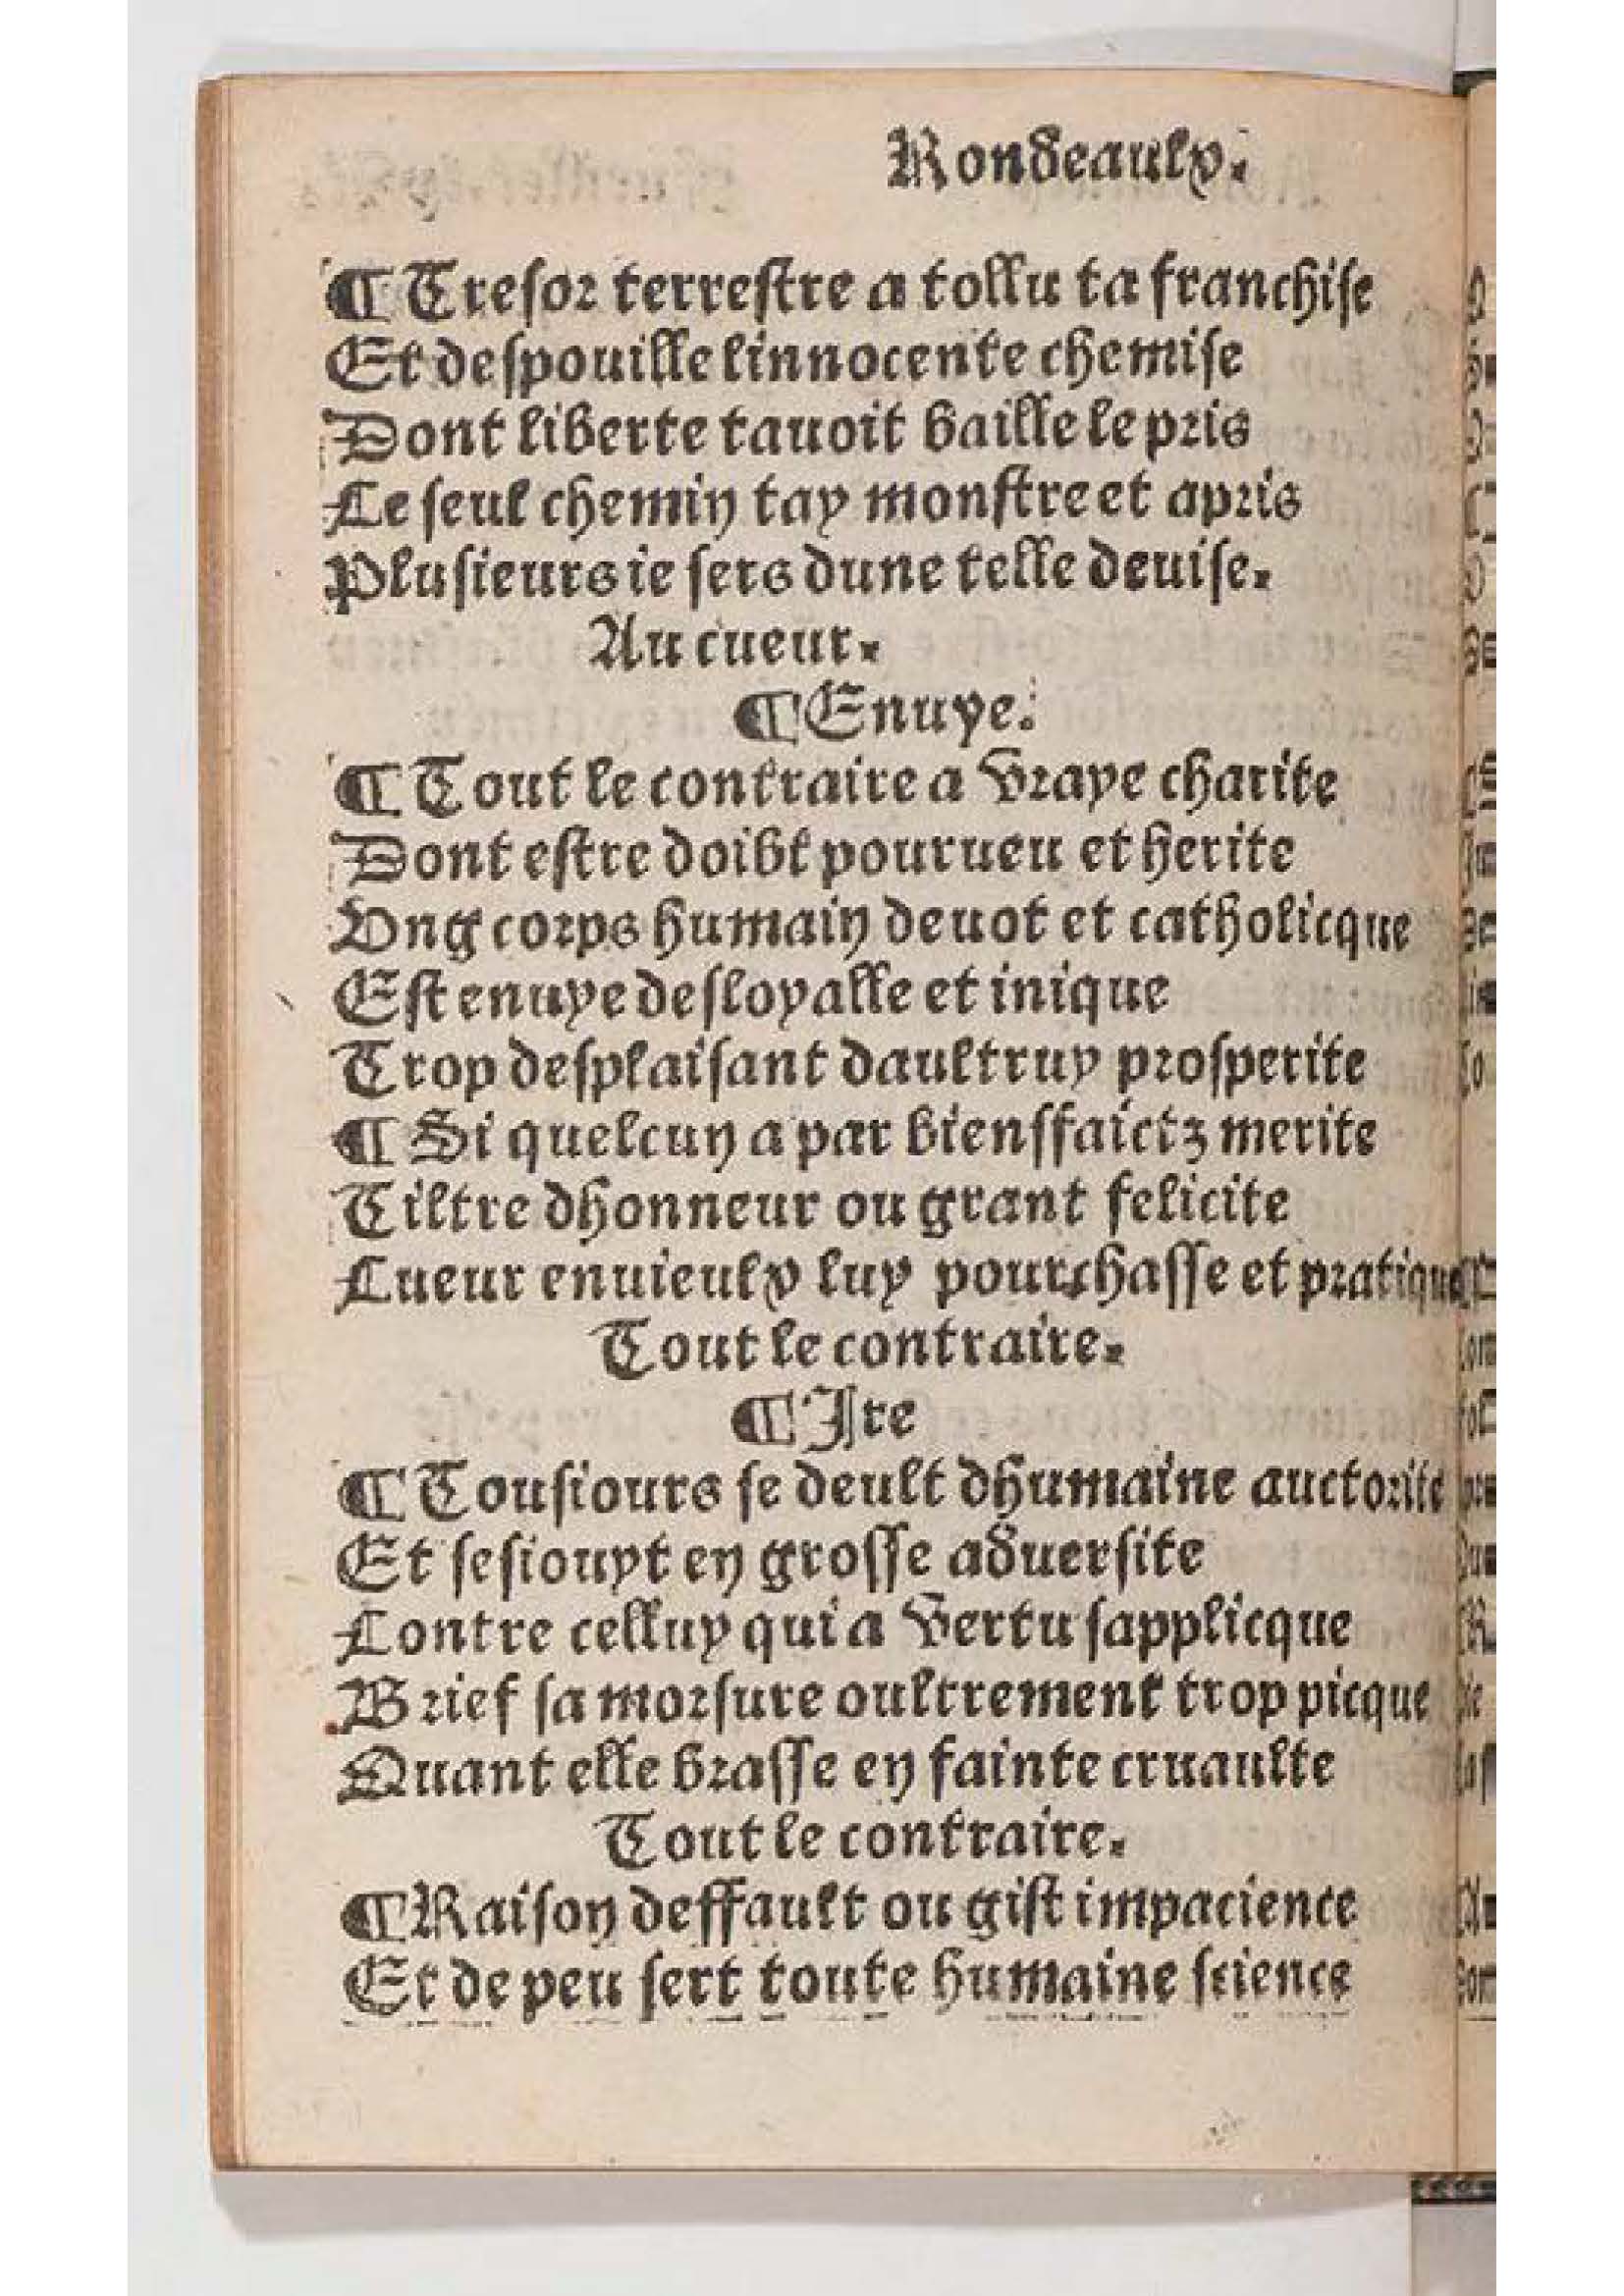 Rondeaulx.
¶ Tresor terrestre a tollu ta franchise
Et despouille linnocente chemise
Dont liberte tauoit baille le pris
Le seul chemin tay monstre et apris
Plusieurs ie sers dune telle deuise.
Au cueur.
¶ Enuye.
¶ Tout le contraire a vraye charite
Dont estre doibt pourueu et herite
Ung corps humain deuot et catholicque
Est enuye desloyalle et inique
Trop desplaisant daultruy prosperite
¶ Si quelcun a par biensfaictz merite
Tiltre dhonneur ou grant felicite
Cueur enuieulx luy pourchasse et pratique
Tout le contraire.
¶ Ire
¶ Tousiours se deult dhumaine auctorite
Et sesiouyt en grosse aduersite
Contre celluy qui a vertu sapplicque
Brief sa morsure oultrement trop picque
Quant elle brasse en fainte cruaulte
Tout le contraire.
¶ Raison deffault ou gist impacience
Et de peu sert toute humaine science